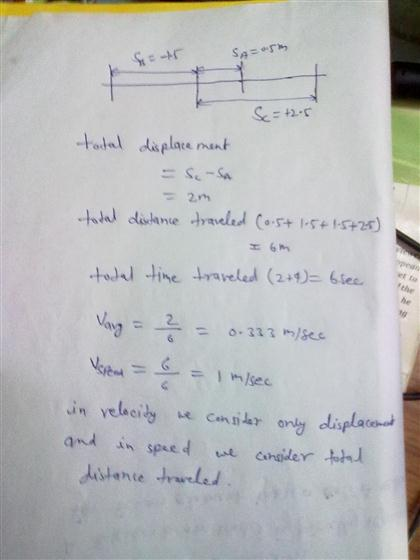 S_B = -1.5 S_A = 0.5m
S_C = +2.5
total displacement
= S_C - S_A
= 2m
total distance traveled (0.5+1.5+1.5+2.5)
= 6m
total time traveled (2+4) = 6sec
V_avg = 2/6 = 0.333 m/sec
V_speed = 6/6 = 1 m/sec
in velocity we consider only displacement
and in speed we consider total
distance traveled.